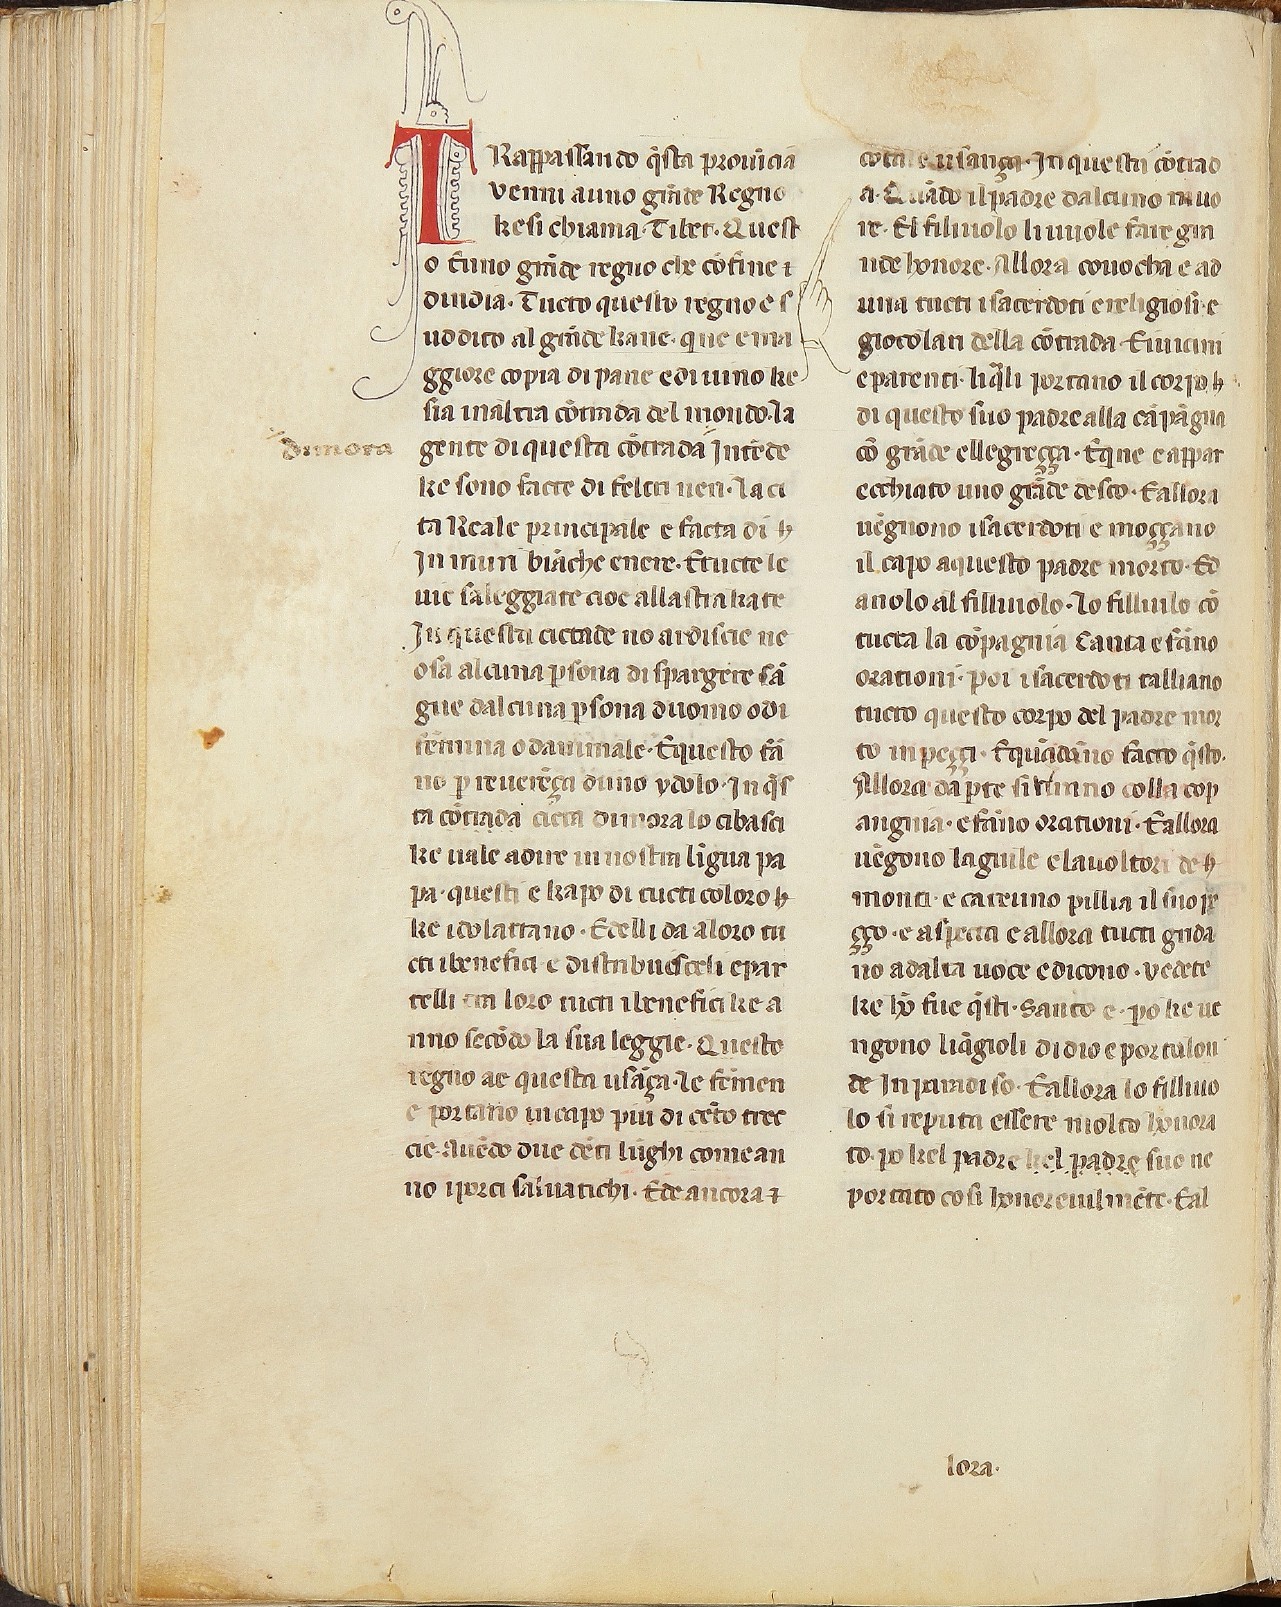 TRappassando q̄sta prouīcia
venni auno grāde Regno
ke si chiama Tibet. Quest
o ē uno grāde regno che cōfine ⁊
dindia. Tucto questo regno e s
uddito al grāde kane. que e ma
ggiore copia di pane e di uino ke
sia in altra cōtrada del mondo. la
gente di questa cōtrada Intēde
ke sono facte di feltri neri. la ci
ta Reale principale e facta di
In muri biāche e nere. E tucte le
uie saleggiate cioe allastrakate
In questa cictade no ardiscie ne
osa alcuna p̄sona di spargere sā
gue dalcuna p̄sona duomo o di
fēmina o danimale. E questo fā
no p̄ reuerēça duno ydolo. In q̄s
ta cōtrada cicta dimora lo cibasci
ke uale a dire in nostra līgua pa
pa. questi e kapo di tucti coloro
ke idolatrano. Ed elli da a loro tu
cti i benefici e distribuisceli e par
telli tra loro tucti i benefici ke a
nno secōdo la sua leggie. Questo
regno ae questa usāça. le fēmen
e portano in capo piu di cēto trec
cie. Auēdo due dēti lūghi come an
no i porci saluatichi. Ed e ancora ⁊
dimora
cotale usança. In questa cōtrad
a. Quādo il padre dalcuno muo
re. El filiuolo li uuole fare gra
nde honore. Allora conocha e ad
una tucti i sacerdoti e religiosi e
giocolari della cōtrada. E i uicini
e parenti. li q̄li portano il corpo
di questo suo padre alla cāpāgna
cō grāde ellegreçça. E que e appar
ecchiato uno grāde desco. E allora
uēgnono i sacerdoti e moççano
il capo a questo padre morto. Ed
anolo al filliuolo. lo filliulo cō
tucta la cōpagnia Canta e fāno
orationi. poi i sacerdoti talliano
tucto questo corpo del padre mor
to in peççi. E quādāno facto q̄sto.
Allora da p̄te si tirano colla cop
angnia. e fāno orationi. E allora
uēgono laguile e lauoltori de
monti. e catenuno pillia il suo pe
çço. e aspecta e allora tucti grida
no ad alta uoce e dicono. vedete
ke hō fue q̄sti. Santo e. po ke ue
ngono liāgioli di dio e portalon
de In paradiso. E allora lo filliuo
lo si reputa essere molto honora
to. po kel padre kel padre suo ne
portato cosi honoreuilmēte. E al
lora.